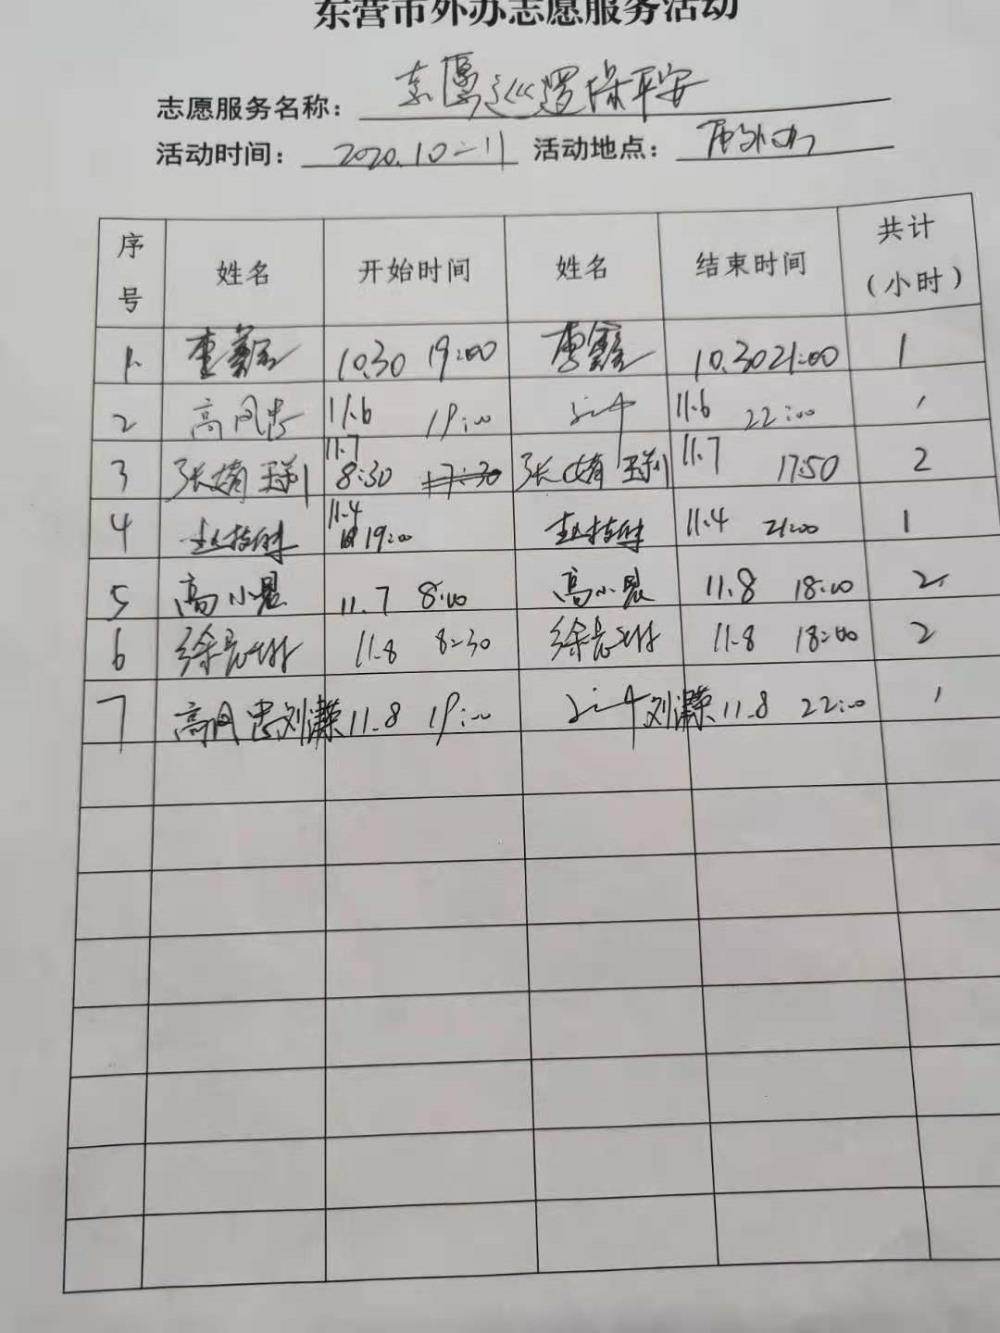 东营市外办志愿服务活动
志愿服务名称：志愿巡逻保平安
活动时间：2020.10-11 活动地点：
序号 姓名 开始时间 姓名 结束时间 共计（小时）
1. 李鑫 10.30 19:00 李鑫 10.30 21:00 1
2 高风忠 11.6 19:00 11.6 22:00 1
3 张婧 11.7 8:30 17:30 张婧 11.7 17:50 2
4 11.4 19:00 11.4 21:00 1
5 高小昆 11.7 8:00 高小昆 11.8 18:00 2
6 11.8 8:30 11.8 18:00 2
7 高风忠 刘潇 11.8 19:00 刘潇 11.8 22:00 1